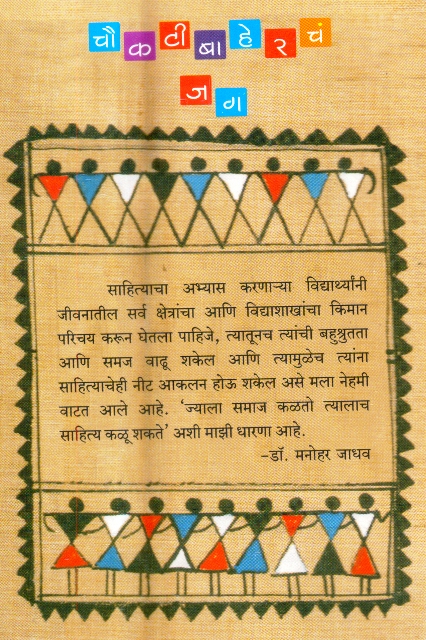 चौकटीबाहेरचं
जग
साहित्याचा अभ्यास करणाऱ्या विद्यार्थ्यांनी
जीवनातील सर्व क्षेत्रांचा आणि विद्याशाखांचा किमान
परिचय करून घेतला पाहिजे, त्यातूनच त्यांची बहुश्रुतता
आणि समज वाढू शकेल आणि त्यामुळेच त्यांना
साहित्याचेही नीट आकलन होऊ शकेल असे मला नेहमी
वाटत आले आहे. ‘ज्याला समाज कळतो त्यालाच
साहित्य कळू शकते’ अशी माझी धारणा आहे.
–डॉ. मनोहर जाधव